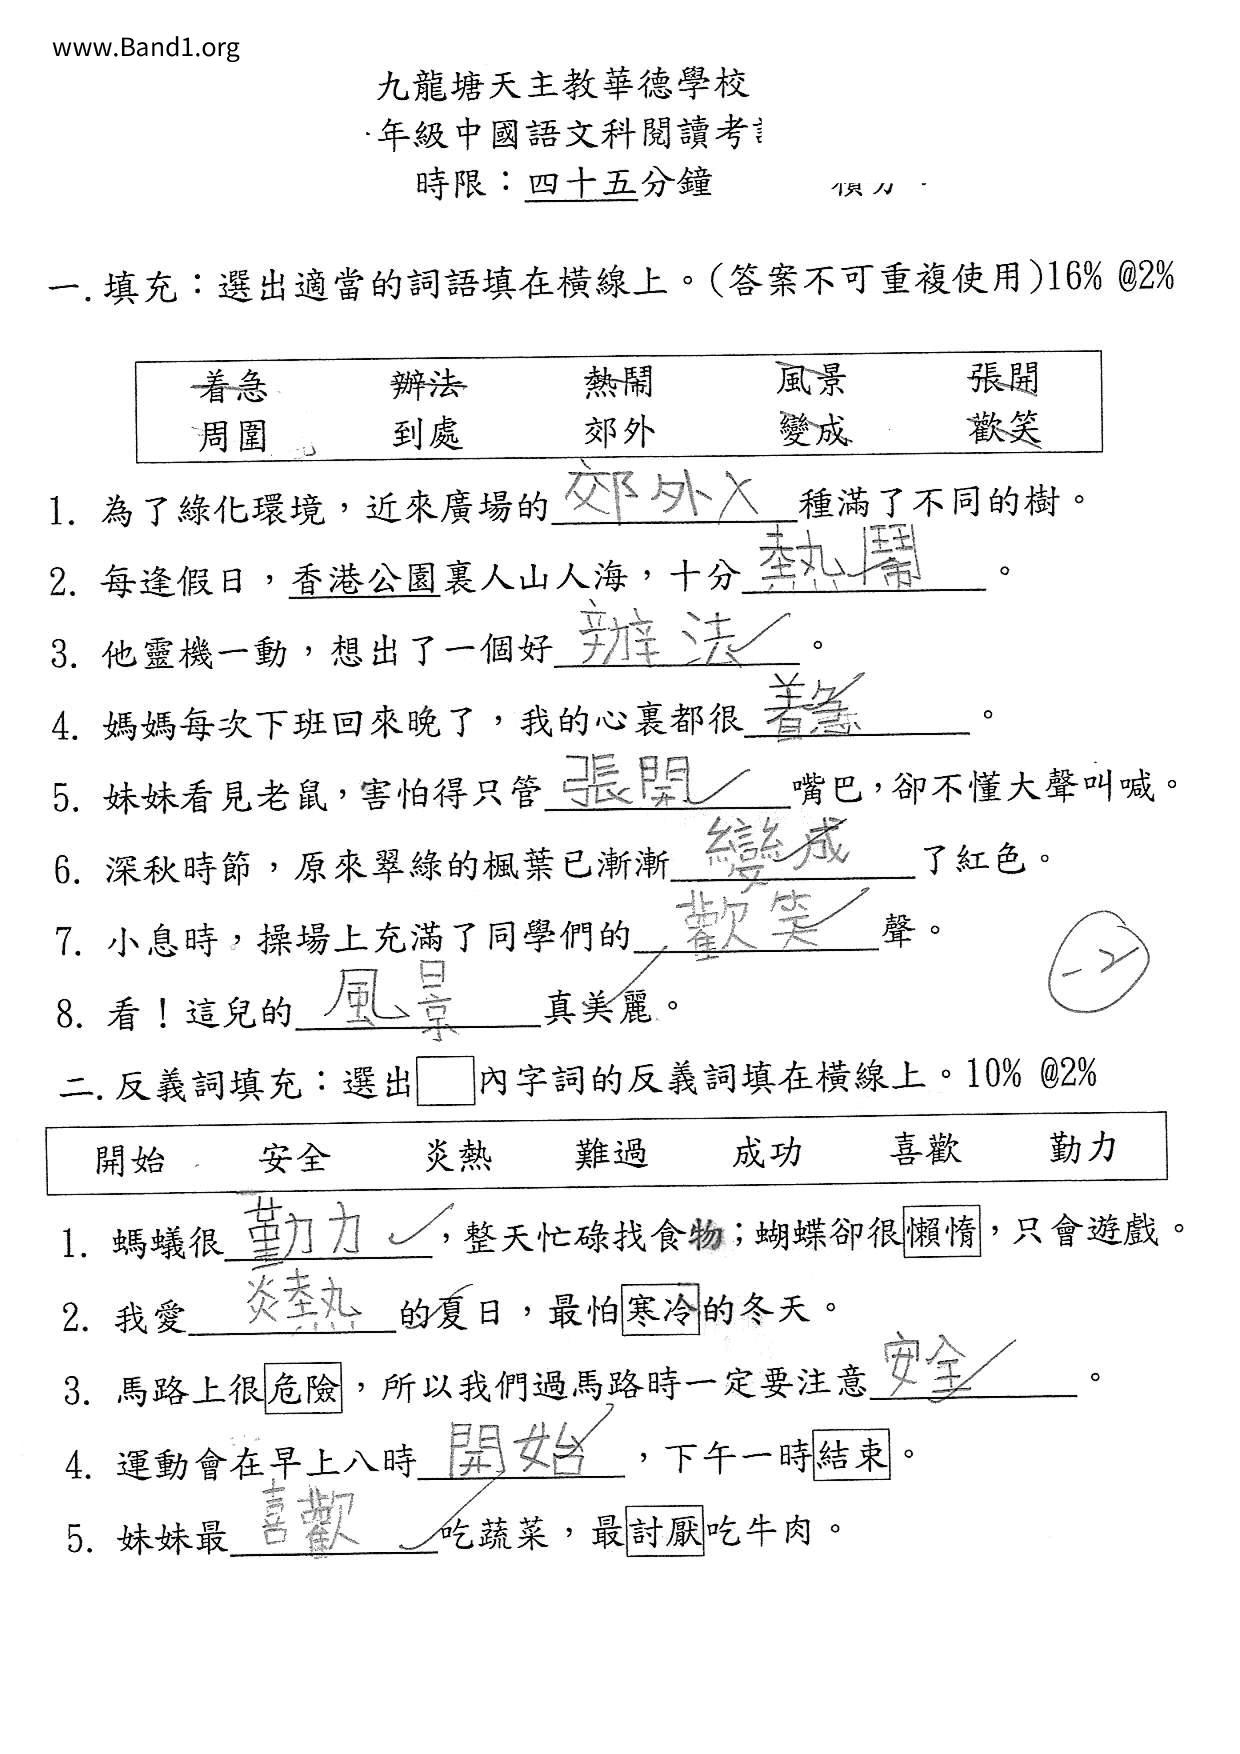 www.Band1.org
九龍塘天主教華德學校
年級中國語文科閱讀考
時限：四十五分鐘
一.填充：選出適當的詞語填在橫線上。(答案不可重複使用)16% @2%
着急 辦法 熱鬧 風景 張開
周圍 到處 郊外 變成 歡笑
1. 為了綠化環境，近來廣場的郊外 X 種滿了不同的樹。
2. 每逢假日，香港公園裏人山人海，十分熱鬧。
3. 他靈機一動，想出了一個好辦法。
4. 媽媽每次下班回來晚了，我的心裏都很着急。
5. 妹妹看見老鼠，害怕得只管張開嘴巴，卻不懂大聲叫喊。
6. 深秋時節，原來翠綠的楓葉已漸漸變成了紅色。
7. 小息時，操場上充滿了同學們的歡笑聲。
-2
8. 看！這兒的風景真美麗。
二.反義詞填充：選出 內字詞的反義詞填在橫線上。10% @2%
開始 安全 炎熱 難過 成功 喜歡 勤力
1. 螞蟻很勤力，整天忙碌找食物；蝴蝶卻很懶惰，只會遊戲。
2. 我愛炎熱的夏日，最怕寒冷的冬天。
3. 馬路上很危險，所以我們過馬路時一定要注意安全。
4. 運動會在早上八時開始，下午一時結束。
5. 妹妹最喜歡吃蔬菜，最討厭吃牛肉。